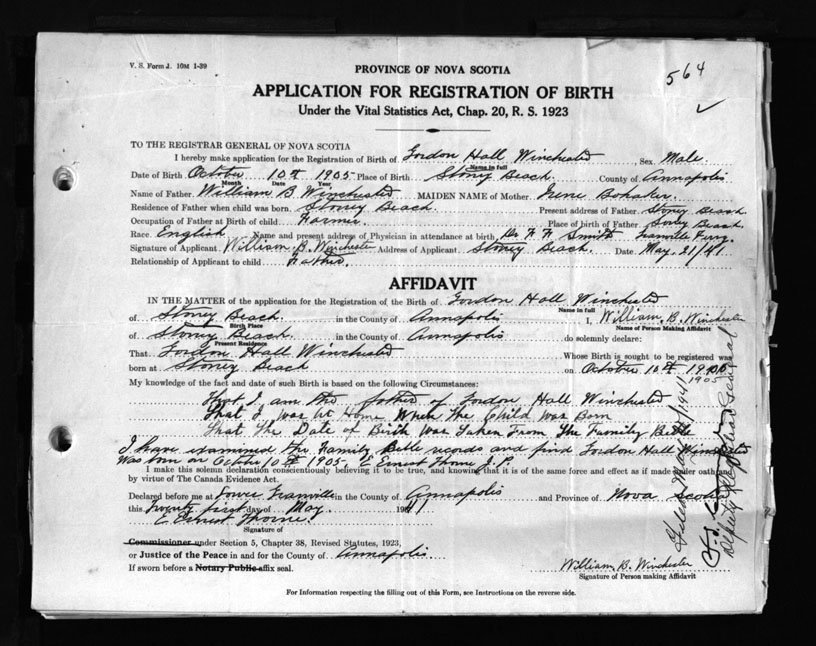 V. S. Form J. 10M 1-39
564
PROVINCE OF NOVA SCOTIA
APPLICATION FOR REGISTRATION OF BIRTH
Under the Vital Statistics Act, Chap. 20, R. S. 1923
TO THE REGISTRAR GENERAL OF NOVA SCOTIA
I hereby make application for the Registration of Birth of Gordon Hall Winchester, Sex Male.
Name in full
Date of Birth October 10th 1905 Place of Birth Stoney Beach County of Annapolis
Month Date Year
Name of Father William B Winchester MAIDEN NAME of Mother Irene Bohaker
Residence of Father when child was born Stoney Beach Present address of Father Stoney Beach
Occupation of Father at Birth of child Farmer Place of birth of Father Stoney Beach
Race English Name and present address of Physician in attendance at birth Dr F. F. Smith Granville Ferry.
Signature of Applicant William B. Winchester Address of Applicant Stoney Beach. Date May. 21/41
Relationship of Applicant to child Father.
AFFIDAVIT
IN THE MATTER of the application for the Registration of the Birth of Gordon Hall Winchester
Name in full
of Stoney Beach in the County of Annapolis I, William. B. Winchester
Birth Place Name of Person Making Affidavit
of Stoney Beach in the County of Annapolis do solemnly declare:
Present Residence
That Gordon Hall Winchester Whose Birth is sought to be registered was
born at Stoney Beach on October 10th 1905
1905
My knowledge of the fact and date of such Birth is based on the following Circumstances:
That I am the father of Gordon Hall Winchester
That I was At Home When The Child was Born
That The Date of Birth Was Taken From The Family Bible
I have examined the Family Bible records and find Gordon Hall Winchester
Was born on October 10th 1905- E Ernest Thorne J. P.
I make this solemn declaration conscientiously believing it to be true, and knowing that it is of the same force and effect as if made under oath and
by virtue of The Canada Evidence Act.
Declared before me at Lower Granville in the County of Annapolis and Province of Nova Scotia
this Twenty first day of May. 1941
E Ernest Thorne.
Signature of
Commissioner under Section 5, Chapter 38, Revised Statutes, 1923,
or Justice of the Peace in and for the County of Annapolis
If sworn before a Notary Public affix seal.
William. B. Winchester
Signature of Person making Affidavit
For Information respecting the filling out of this Form, see Instructions on the reverse side.
1941
Deputy Registrar General